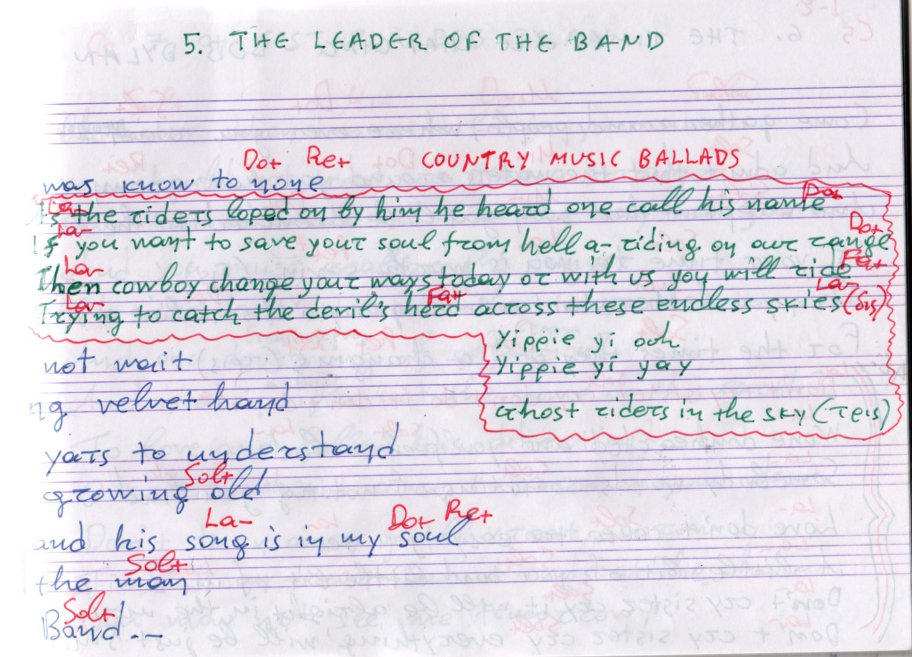 5. THE LEADER OF THE BAND
Do+ Re+ COUNTRY MUSIC BALLADS
was know to none
La- Do+
As the riders loped on by him he heard one call his name
La- Do+
If you want to save your soul from hell a-riding on our range
La- Fa+
Then cowboy change your ways today or with us you will ride
La- Fa+ La-
Trying to catch the devil's herd across these endless skies (δις)
Yippie yi ooh
not wait
Yippie yi yay
ng velvet hand
Ghost riders in the sky (τρις)
yars to understand
Sol+
growing old
La- Do+ Re+
and his song is in my soul
Sol+
the man
Sol+
Band.--